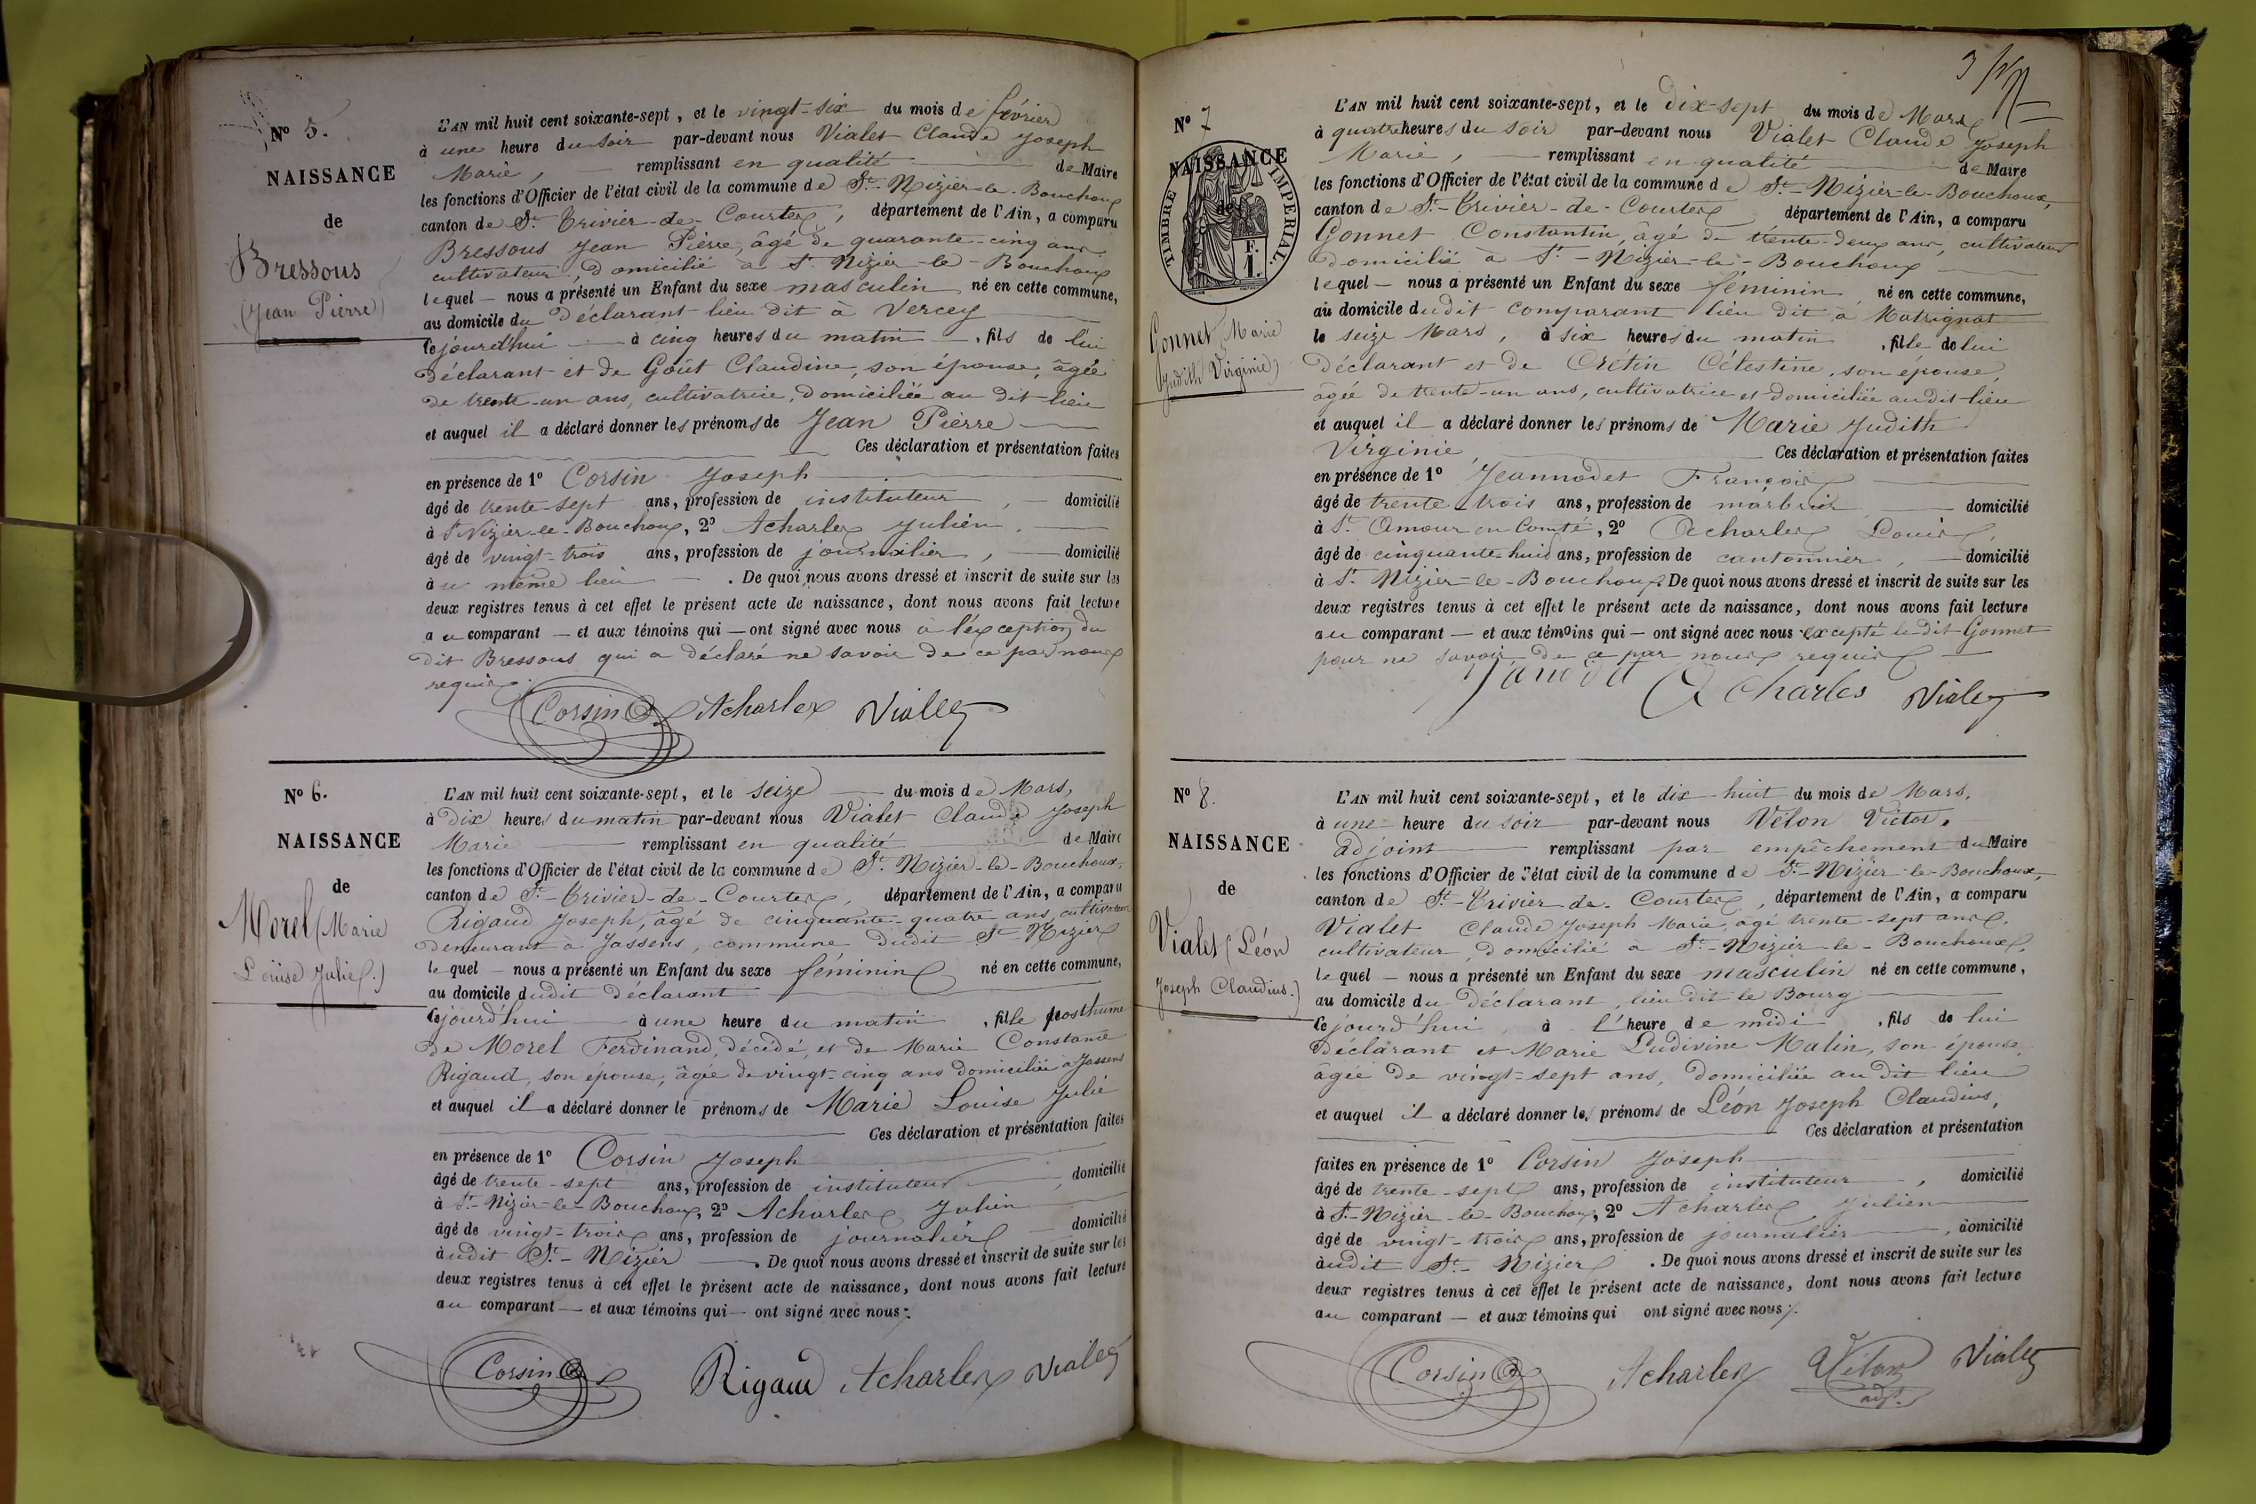 N° 5.
NAISSANCE
de
Bressous
(Jean Pierre)
L'AN mil huit cent soixante-sept, et le vingt-six du mois de février
à une heure du soir par-devant nous Vialet Claude Joseph
Marie, remplissant en qualité de Maire
les fonctions d'Officier de l'état civil de la commune de St-Nizier-le-Bouchoux
canton de St-Trivier-de-Courtes, département de l'Ain, a comparu
Bressous Jean Pierre, âgé de quarante-cinq ans
cultivateur, domicilié à St Nizier-le-Bouchoux
lequel — nous a présenté un Enfant du sexe masculin né en cette commune,
au domicile du déclarant lieu dit à Vercey
cejourd'hui à cinq heures du matin, fils de lui
déclarant et de Goût Claudine, son épouse, âgée
de trente-un ans, cultivatrice, domiciliée au dit lieu
et auquel il a déclaré donner les prénoms de Jean Pierre
Ces déclaration et présentation faites
en présence de 1° Corsin Joseph
âgé de trente-sept ans, profession de instituteur, domicilié
à St Nizier-le-Bouchoux, 2° Acharles Julien
âgé de vingt-trois ans, profession de journalier, domicilié
au même lieu. De quoi nous avons dressé et inscrit de suite sur les
deux registres tenus à cet effet le présent acte de naissance, dont nous avons fait lecture
au comparant — et aux témoins qui — ont signé avec nous à l'exception du
dit Bressous qui a déclaré ne savoir de ce par nous
requis.
Corsin Acharles Vialet
N° 6.
NAISSANCE
de
Morel (Marie
Louise Julie.)
L'AN mil huit cent soixante-sept, et le seize du mois de Mars,
à dix heures du matin par-devant nous Vialet Claude Joseph
Marie remplissant en qualité de Maire
les fonctions d'Officier de l'état civil de la commune de St-Nizier-le-Bouchoux,
canton de St-Trivier-de-Courtes, département de l'Ain, a comparu
Rigaud Joseph, âgé de cinquante-quatre ans, cultivateur
demeurant à Jassens, commune dudit St-Nizier
lequel — nous a présenté un Enfant du sexe féminin né en cette commune,
au domicile dudit déclarant
cejourd'hui à une heure du matin, fille posthume
de Morel Ferdinand, décédé, et de Marie Constance
Rigaud, son épouse, âgée de vingt-cinq ans domiciliée à Jassens
et auquel il a déclaré donner le prénoms de Marie Louise Julie
Ces déclaration et présentation faites
en présence de 1° Corsin Joseph
âgé de trente-sept ans, profession de instituteur, domicilié
à St-Nizier-le-Bouchoux, 2° Acharles Julien
âgé de vingt-trois ans, profession de journalier domicilié
audit St-Nizier. De quoi nous avons dressé et inscrit de suite sur les
deux registres tenus à cet effet le présent acte de naissance, dont nous avons fait lecture
au comparant — et aux témoins qui — ont signé avec nous.
Corsin Rigaud Acharles Vialet
3
N° 7
NAISSANCE
de
TIMBRE IMPERIAL.
F.
1.
Gonnet (Marie
Judith Virginie)
L'AN mil huit cent soixante-sept, et le dix-sept du mois de Mars
à quatre heures du soir par-devant nous Vialet Claude Joseph
Marie, remplissant en qualité de Maire
les fonctions d'Officier de l'état civil de la commune de St-Nizier-le-Bouchoux,
canton de St-Trivier-de-Courtes département de l'Ain, a comparu
Gonnet Constantin, âgé de trente-deux ans, cultivateur
domicilié à St-Nizier-le-Bouchoux
lequel — nous a présenté un Enfant du sexe féminin, né en cette commune,
au domicile dudit comparant lieu dit à Matrignat
le seize Mars, à six heures du matin, fille de lui
déclarant et de Crétin Célestine, son épouse,
âgée de trente-un ans, cultivatrice et domiciliée au dit lieu
et auquel il a déclaré donner les prénoms de Marie Judith
Virginie, Ces déclaration et présentation faites
en présence de 1° Jeannodet François
âgé de trente-trois ans, profession de marbrier domicilié
à St Amour en Comté, 2° Acharles Louis,
âgé de cinquante-huit ans, profession de cantonnier, domicilié
à St Nizier-le-Bouchoux De quoi nous avons dressé et inscrit de suite sur les
deux registres tenus à cet effet le présent acte de naissance, dont nous avons fait lecture
au comparant — et aux témoins qui — ont signé avec nous excepté le dit Gonnet
pour ne savoir de ce par nous requis
Acharles Vialet
N° 8.
NAISSANCE
de
Vialet (Léon
Joseph Claudius.)
L'AN mil huit cent soixante-sept, et le dix-huit du mois de Mars.
à une heure du soir par-devant nous Vélon Victor,
adjoint remplissant par empêchement du Maire
les fonctions d'Officier de l'état civil de la commune de St-Nizier-le-Bouchoux,
canton de St-Trivier-de-Courtes, département de l'Ain, a comparu
Vialet Claude Joseph Marie, âgé trente-sept ans,
cultivateur, domicilié à St-Nizier-le-Bouchoux,
lequel — nous a présenté un Enfant du sexe masculin né en cette commune,
au domicile du déclarant, lieu dit le Bourg
cejourd'hui à l'heure de midi, fils de lui
déclarant et Marie Ludivine Malin, son épouse,
âgée de vingt-sept ans, domiciliée au dit lieu
et auquel il a déclaré donner les prénoms de Léon Joseph Claudius,
Ces déclaration et présentation
faites en présence de 1° Corsin Joseph
âgé de trente-sept ans, profession de instituteur, domicilié
à St-Nizier-le-Bouchoux, 2° Acharles Julien
âgé de vingt-trois ans, profession de journalier, domicilié
audit St-Nizier. De quoi nous avons dressé et inscrit de suite sur les
deux registres tenus à cet effet le présent acte de naissance, dont nous avons fait lecture
au comparant — et aux témoins qui ont signé avec nous.
Corsin Acharles Vélon Vialet
adjt.